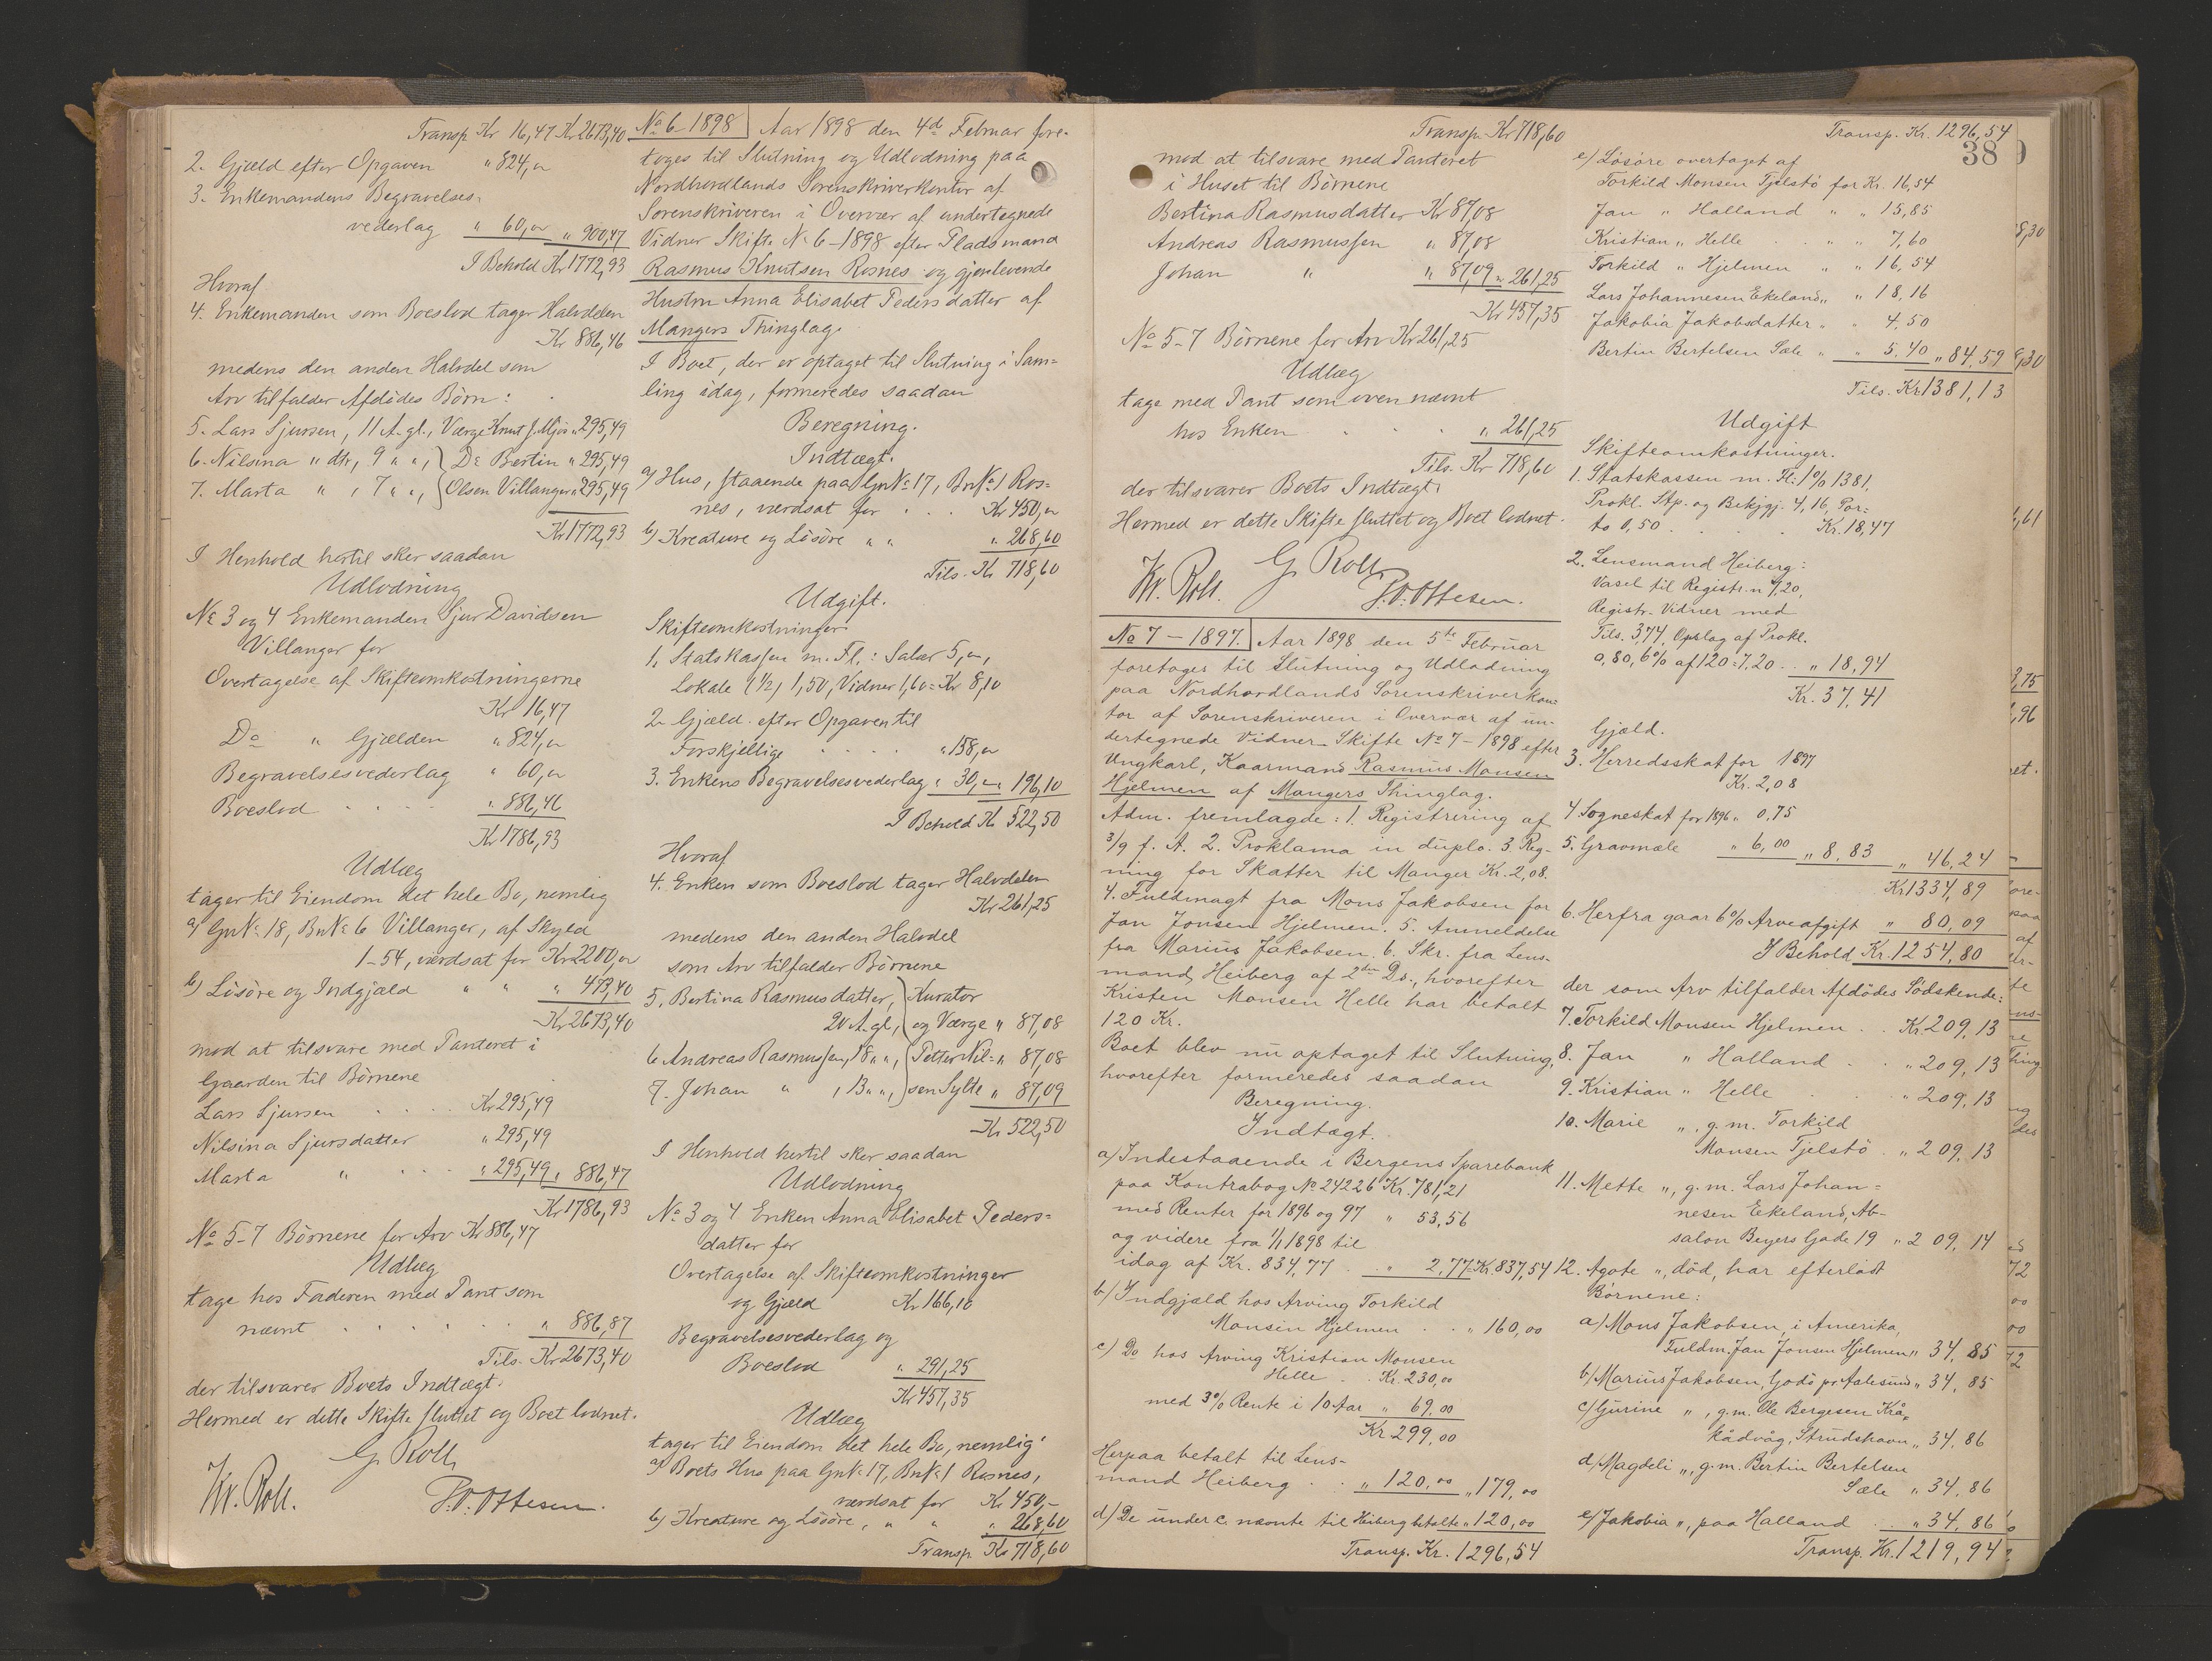 Transp. Kr 16,47 Kr 2673,40
2. Gjæld efter Opgaven " 824,"
3. Enkemandens Begravelses-
vederlag " 60," " 900,47
I Behold Kr 1772,93
Hvoraf
4. Enkemanden som Boeslod tager Halvdelen
Kr 886,46
medens den anden Halvdel som
Arv tilfalder Afdødes Børn:
5. Lars Sjursen, 11 A. gl., Værge Knut J. Mjøs " 295,49
6. Nilsina " dtr, 9 " ", Do Bertin " 295,49
7. Marta " , 7 " ", Olsen Villanger " 295,49
Kr 1772,93
I Henhold hertil sker saadan
Udlodning
No 3 og 4 Enkemanden Sjur Davidsen
Villanger for
Overtagelse af Skifteomkostningerne
Kr 16,47
Do " Gjælden " 824,"
Begravelsesvederlag " 60,"
Boeslod . . . . " 886,46
Kr 1786,93
Udlæg
tager til Eiendom det hele Bo, nemlig
a) GnNo 18, BnNo 6 Villanger, af Skyld
1-54, værdsat for Kr 2200,"
b) Løsøre og Indgjæld " " " 473,40
Kr 2673,40
mod at tilsvare med Panteret i
Gaarden til Børnene
Lars Sjursen . . . . Kr 295,49
Nilsina Sjursdatter " 295,49
Marta " . . . " 295,49 " 886,47
Kr 1786,93
No 5-7 Børnene for Arv Kr 886,47
Udlæg
tage hos Faderen med Pant som
nævnt . . . . . . " 886,87
Tils. Kr 2673,40
der tilsvarer Boets Indtægt.
Hermed er dette Skifte sluttet og Boet lodnet.
G. Roll
Kr. Roll. P.O. Ottesen.
No 6-1898 Aar 1898 den 4de Februar fore-
toges til Slutning og Udlodning paa
Nordhordlands Sorenskriverkontor af
Sorenskriveren i Overvær af undertegnede
Vidner Skifte No 6-1898 efter Pladsmand
Rasmus Knutsen Rosnes og gjenlevende
Hustru Anna Elisabet Pedersdatter af
Mangers Thinglag.
I Boet, der er optaget til Slutning i Sam-
ling idag, formeredes saadan
Beregning.
Indtægt.
a) Hus, staaende paa GnNo 17, BnNo 1 Ros-
nes, værdsat for . . . Kr 450,"
b) Kreature og Løsøre " " " 268,60
Tils. Kr 718,60
Udgift.
Skifteomkostninger.
1. Statskassen m. Fl.: Salær 5,",
Lokale (1/2) 1,50, Vidner 1,60 = Kr 8,10
2. Gjæld efter Opgaven til
Forskjellige . . . . " 158,"
3. Enkens Begravelsesvederlag " 30," " 196,10
I Behold Kr 522,50
Hvoraf
4. Enken som Boeslod tager Halvdelen
Kr 261,25
medens den anden Halvdel
som Arv tilfalder Børnene
5. Bertina Rasmusdatter, Kurator
20 A. gl., og Værge " 87,08
6. Andreas Rasmussen, 18 " ", Petter Nil- " 87,08
7. Johan " , 13 " ", sen Sylte " 87,09
Kr 522,50
I Henhold hertil sker saadan
Udlodning
No 3 og 4 Enken Anna Elisabet Peders-
datter for
Overtagelse af Skifteomkostninger
og Gjæld Kr 166,10
Begravelsesvederlag og
Boeslod " 291,25
Kr 457,35
Udlæg
tager til Eiendom det hele Bo, nemlig
a) Boets Hus paa GnNo 17, BnNo 1 Rosnes,
værdsat for Kr 450,-
b) Kreature og Løsøre, " " " 268,60
Transp. Kr 718,60
Transp. Kr 718,60
mod at tilsvare med Panteret
i Huset til Børnene
Bertina Rasmusdatter Kr 87,08
Andreas Rasmussen " 87,08
Johan " " 87,09 " 261,25
Kr 457,35
No 5-7 Børnene for Arv Kr 261,25
Udlæg
tage med Pant som oven nævnt
hos Enken . . . . " 261,25
Tils. Kr 718,60
der tilsvarer Boets Indtægt.
Hermed er dette Skifte sluttet og Boet lodnet.
G. Roll
Kr. Roll. P.O. Ottesen.
No 7 - 1897. Aar 1898 den 5te Februar
foretoges til Slutning og Udlodning
paa Nordhordlands Sorenskriverkon-
tor af Sorenskriveren i Overvær af un-
dertegnede Vidner Skifte No 7 - 1898 efter
Ungkarl, Kaarmand Rasmus Monsen
Hjelmen af Mangers Thinglag.
Adm. fremlagde: 1. Registrering af
3/9 f. A. 2. Proklama in duplo. 3. Reg-
ning for Skatter til Manger Kr. 2,08.
4. Fuldmagt fra Mons Jakobsen for
Jan Jonsen Hjelmen. 5. Anmeldelse
fra Marius Jakobsen. 6. Skr. fra Lens-
mand Heiberg af 2den Ds., hvorefter
Kristen Monsen Helle har betalt
120 Kr.
Boet blev nu optaget til Slutning,
hvorefter formeredes saadan
Beregning.
Indtægt.
a) Indestaaende i Bergens Sparebank
paa Kontrabog No 24226 Kr. 781,21
med Renter for 1896 og 97 " 53,56
og videre fra 1/1 1898 til
idag af Kr. 834,77 . . " 2,77 Kr. 837,54
b) Indgjæld hos Arving Torkild
Monsen Hjelmen . . " 160,00
c) Do hos Arving Kristian Monsen
Helle . . Kr. 230,00
med 3% Rente i 10 Aar " 69,00
Kr. 299,00
Herpaa betalt til Lens-
mand Heiberg . . " 120,00 " 179,00
d) De under c. nævnte til Heiberg betalte " 120,00
Transp. Kr. 1296,54
Transp. Kr. 1296,54
38
e) Løsøre overtaget af
Torkild Monsen Tjelstø for Kr. 16,54
Jan " Halland " " 15,85
Kristian " Helle . . " " 7,60
Torkild " Hjelmen " " 16,54
Lars Johannesen Ekeland " " 18,16
Jakobia Jakobsdatter " " 4,50
Bertin Bertelsen Sæle " " 5,40 " 84,59
Tils. Kr. 1381,13
Udgift
Skifteomkostninger.
1. Statskassen m. Fl: 1% 1381,
Prokl. Stp. og Bekjgj. 4,16, Por-
to 0,50 . . . . Kr. 18,47
2. Lensmand Heiberg:
Varsel til Registr. n 1,20,
Registr. Vidner med
Tils. 3,74, Opslag af Prokl.
0,80, 6% af 120 = 7,20 . . " 18,94
Kr. 37,41
Gjæld.
3. Herredsskat for 1897
Kr. 2,08
4. Sogneskat for 1896 " 0,75
5. Gravmæle " 6,00 " 8,83 " 46,24
Kr. 1334,89
6. Herfra gaar 6% Arveafgift " 80,09
I Behold Kr. 1254,80
der som Arv tilfalder Afdødes Sødskende:
7. Torkild Monsen Hjelmen . . Kr. 209,13
8. Jan " Halland . . " 209,13
9. Kristian " Helle . . " 209,13
10. Marie " , g. m. Torkild
Monsen Tjelstø . " 209,13
11. Mette " , g. m. Lars Johan-
nesen Ekeland, Ab-
salon Beyers Gade 19 " 209,14
12. Agote " , død, har efterladt
Børnene:
a) Mons Jakobsen i Amerika,
Fuldm. Jan Jonsen Hjelmen " 34,85
b) Marius Jakobsen, Godø pr Aalesund " 34,85
c) Gurine " , g. m. Ole Bergesen Krå-
kådvåg, Strudshavn " 34,86
d) Magdeli " , g. m. Bertin Bertelsen
Sæle " 34,86
e) Jakobia " , paa Halland . . " 34,86
Transp. Kr. 1219,94